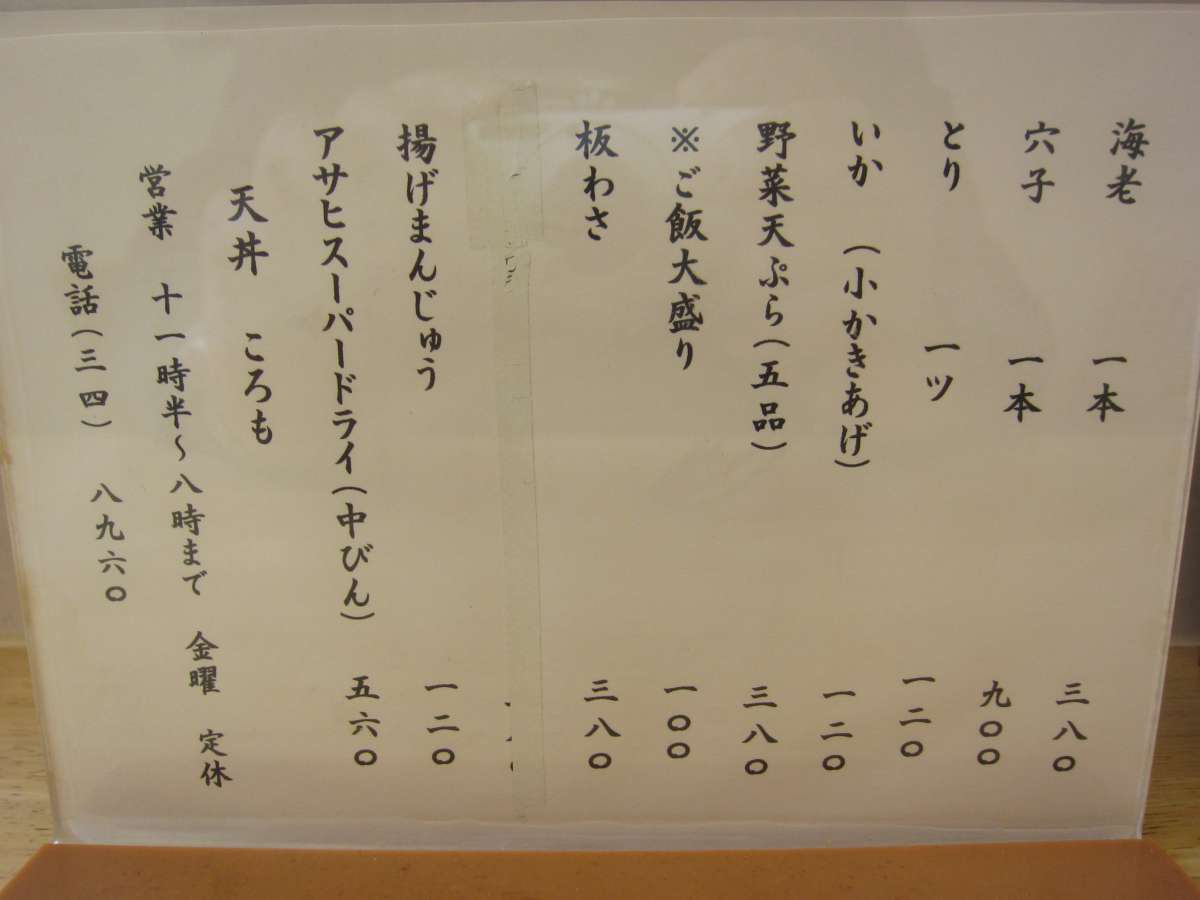 海老 一本 三八〇
穴子 一本 九〇〇
とり 一ツ 一二〇
いか (小かきあげ) 一二〇
野菜天ぷら(五品) 三八〇
※ご飯大盛り 一〇〇
板わさ 三八〇
揚げまんじゅう 一二〇
アサヒスーパードライ(中びん) 五六〇
天丼 ころも
営業 十一時半〜八時まで 金曜 定休
電話(三四) 八九六〇